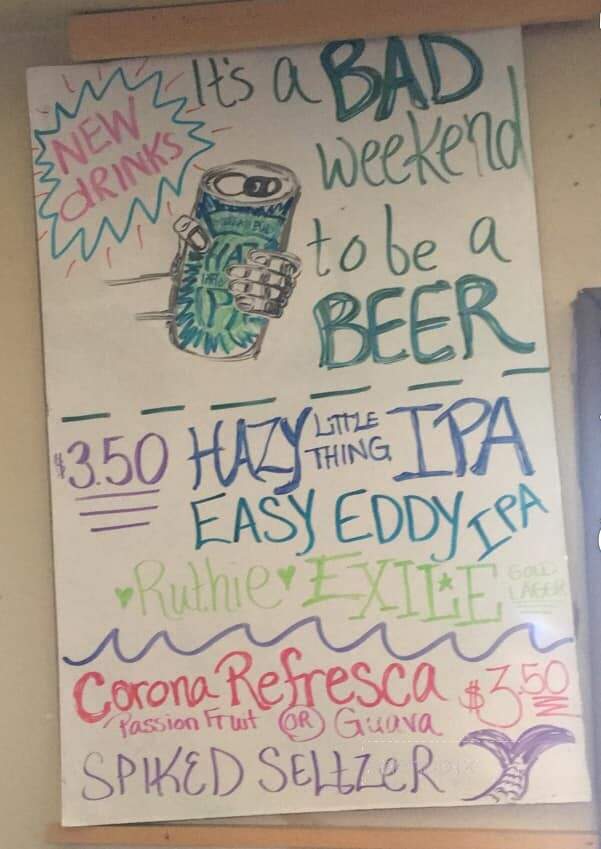 NEW
dRINKS
It's a BAD
weekend
to be a
BEER
$3.50 HAZY LITTLE THING IPA
EASY EDDY IPA
Ruthie EXILE GOLD LAGER
Corona Refresca $3.50
Passion Fruit OR Guava
SPIKED SELtZER